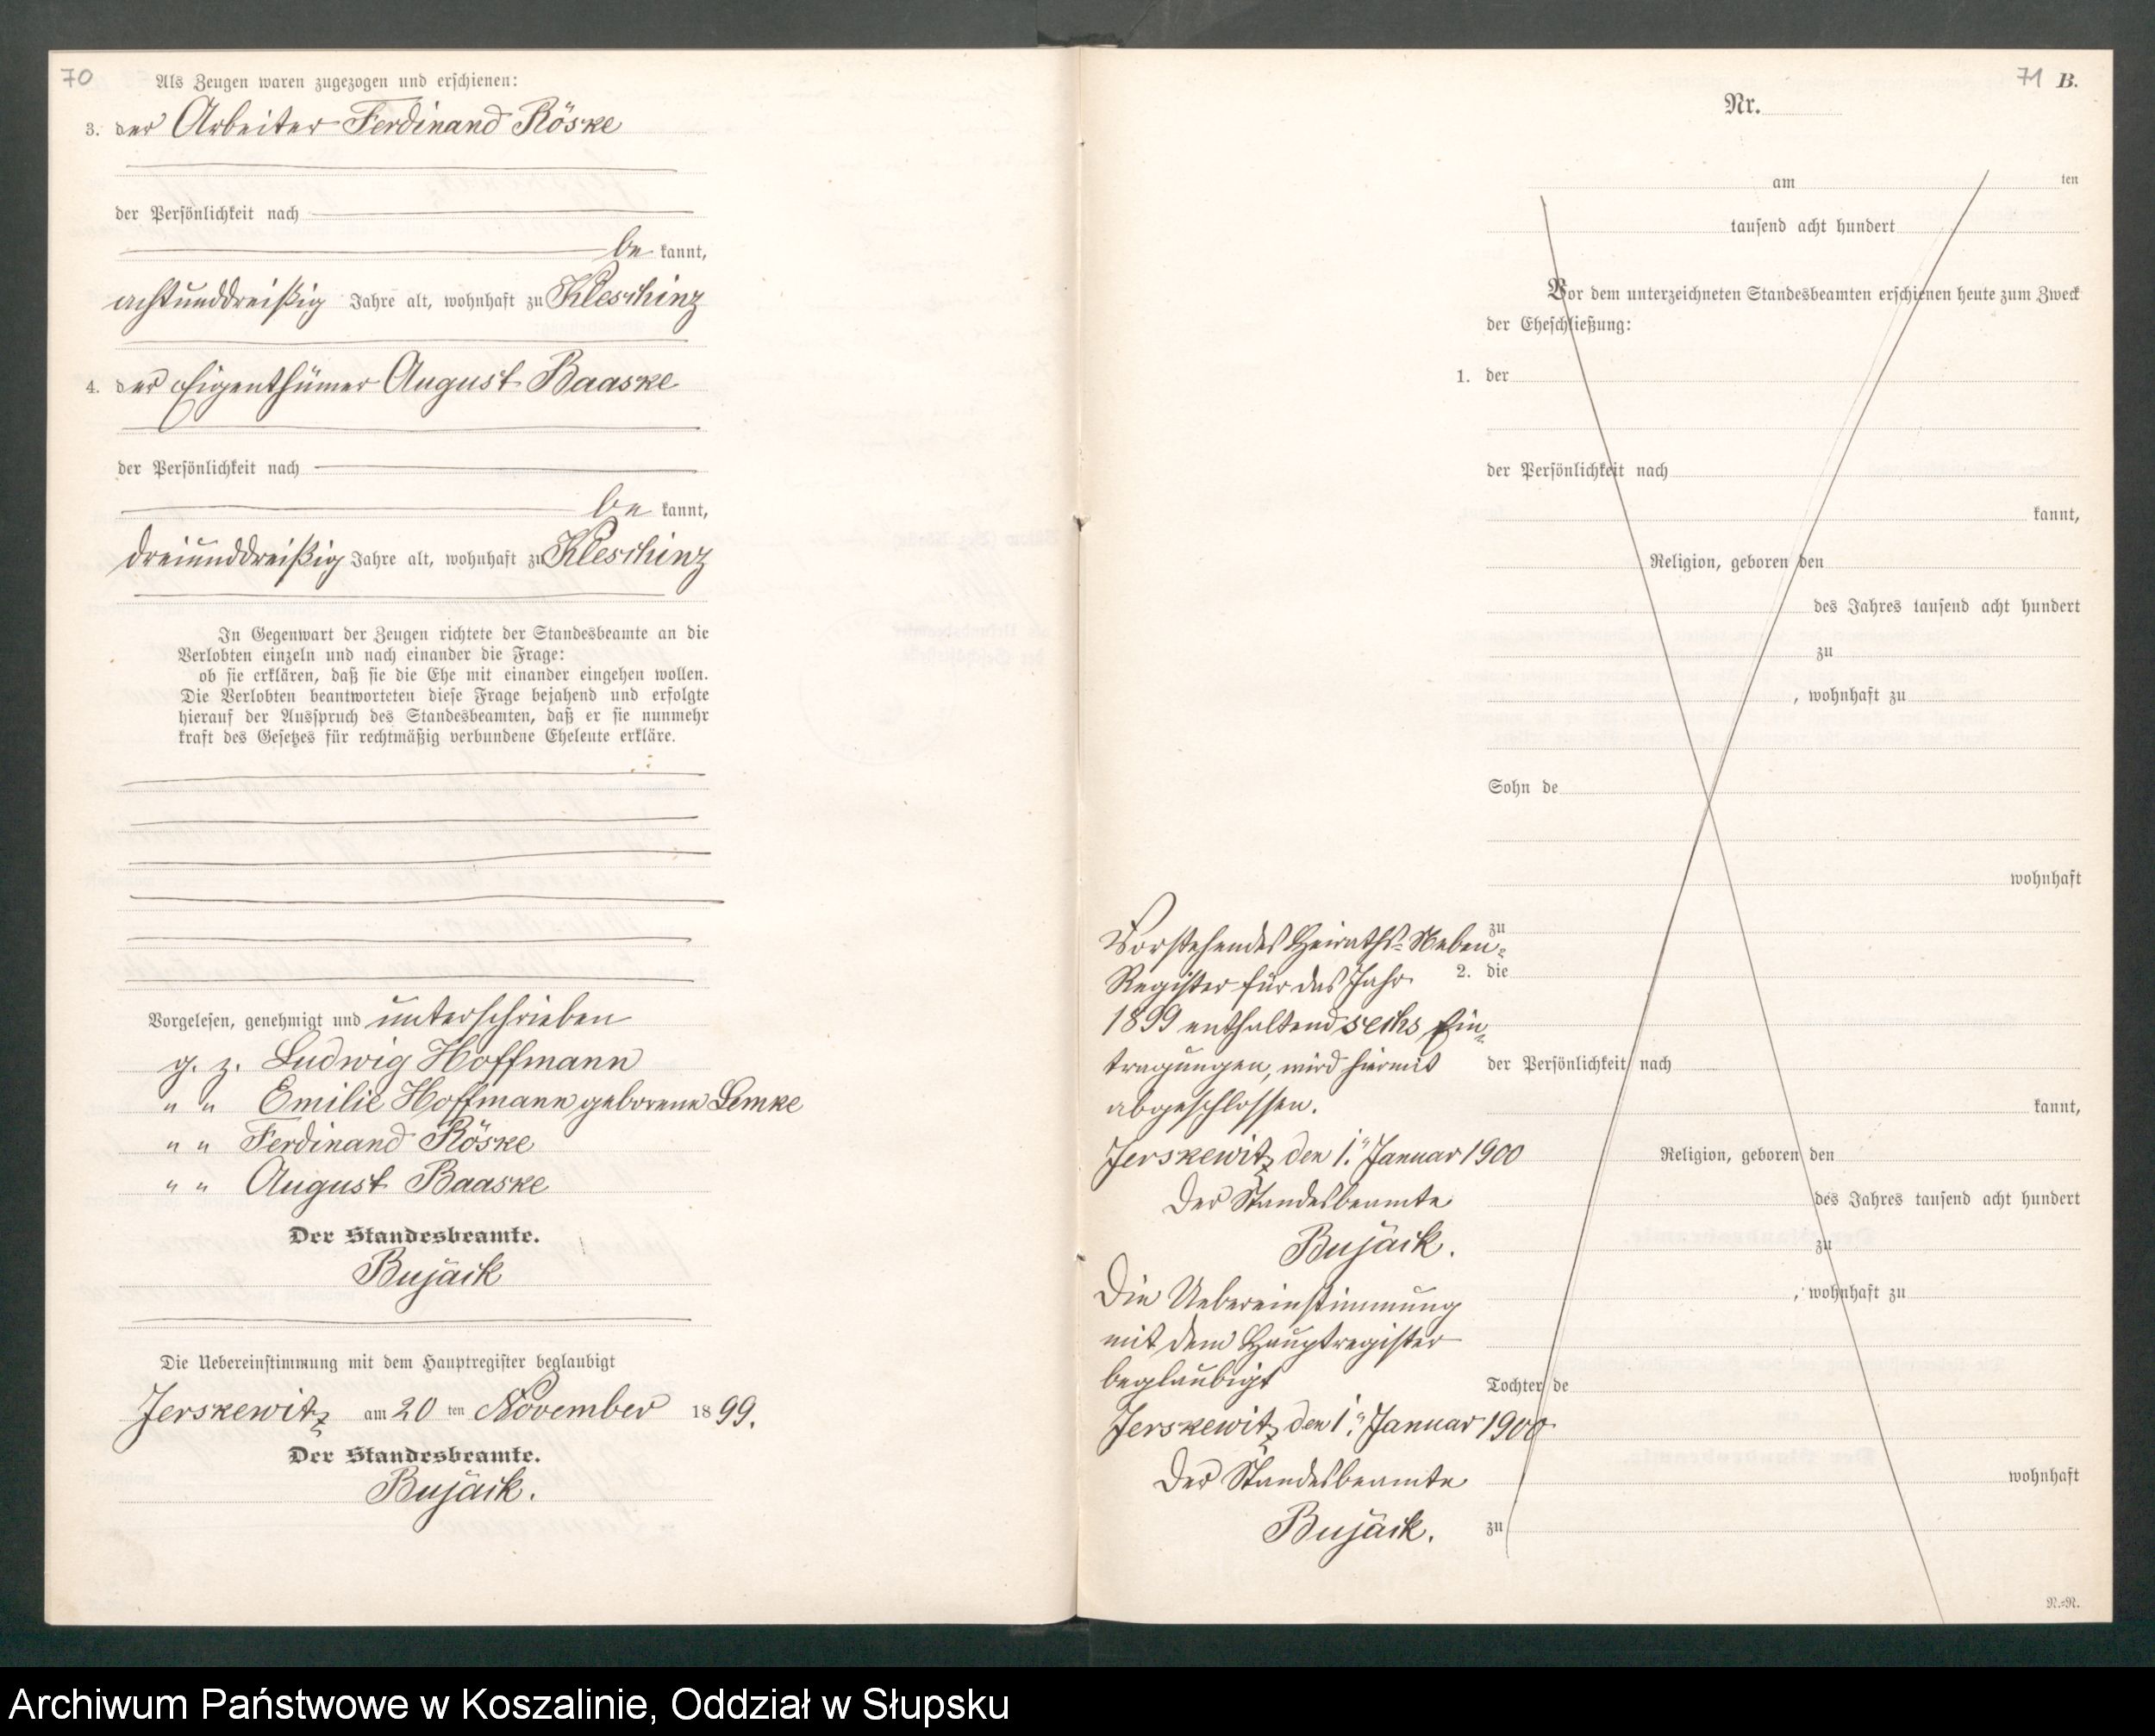 70
Als Zeugen waren zugezogen und erschienen:
3. der Arbeiter Ferdinand Röske
der Persönlichkeit nach
be kannt,
achtunddreißig Jahre alt, wohnhaft zu Kleschinz
4. der Eigenthümer August Baaske
der Persönlichkeit nach
be kannt,
dreiunddreißig Jahre alt, wohnhaft zu Kleschinz
In Gegenwart der Zeugen richtete der Standesbeamte an die
Verlobten einzeln und nach einander die Frage:
ob sie erklären, daß sie die Ehe mit einander eingehen wollen.
Die Verlobten beantworteten diese Frage bejahend und erfolgte
hierauf der Ausspruch des Standesbeamten, daß er sie nunmehr
kraft des Gesetzes für rechtmäßig verbundene Eheleute erkläre.
Vorgelesen, genehmigt und unterschrieben
g. z. Ludwig Hoffmann
" " Emilie Hoffmann geborene Lemke
" " Ferdinand Röske
" " August Baaske
Der Standesbeamte.
Bujack
Die Uebereinstimmung mit dem Hauptregister beglaubigt
Jerskewitz am 20 ten November 18 99.
Der Standesbeamte.
Bujack.
71 B.
Nr.
am ten
tausend acht hundert
Vor dem unterzeichneten Standesbeamten erschienen heute zum Zweck
der Eheschließung:
1. der
der Persönlichkeit nach
kannt,
Religion, geboren den
des Jahres tausend acht hundert
zu
, wohnhaft zu
Sohn de
wohnhaft
zu
2. die
der Persönlichkeit nach
kannt,
Religion, geboren den
des Jahres tausend acht hundert
zu
, wohnhaft zu
Tochter de
wohnhaft
zu
N.=N.
Vorstehendes Heiraths-Neben-
Register für das Jahr
1899 enthaltend sechs Ein-
tragungen, wird hiermit
abgeschlossen.
Jerskewitz den 1. Januar 1900
Der Standesbeamte
Bujack.
Die Uebereinstimmung
mit dem Hauptregister
beglaubigt
Jerskewitz den 1. Januar 1900.
Der Standesbeamte
Bujack.
Archiwum Państwowe w Koszalinie, Oddział w Słupsku